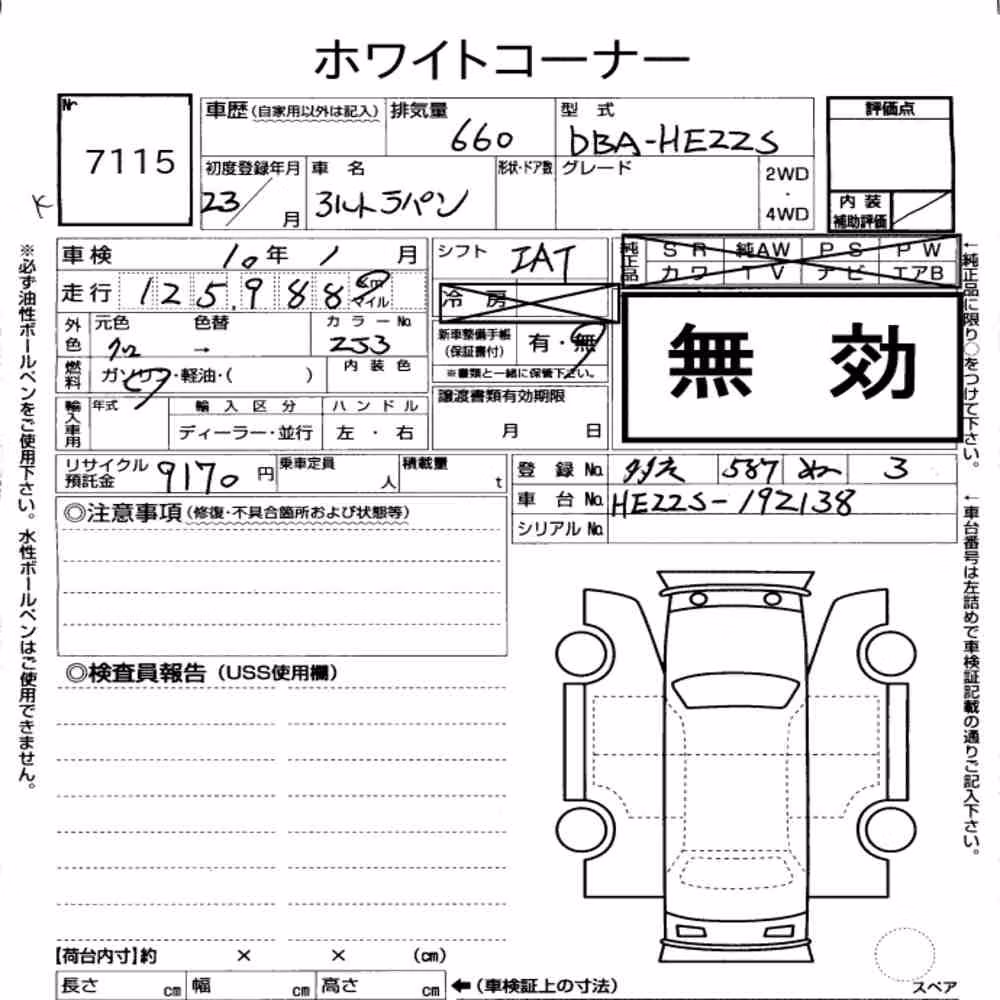 ホワイトコーナー
No
7115
車歴 (自家用以外は記入)
排気量
660
型 式
DBA-HE22S
評価点
初度登録年月
23/ 月
車 名
アルトラパン
形状・ドア数
グレード
2WD
・
4WD
内 装
補助評価
K
車検 10年 1 月
シフト IAT
純正品
SR 純AW PS PW
カワ TV ナビ エアB
走行 125,988 km
マイル
冷 房
外色
元色 色替
クロ →
カラーNo.
ZJ3
新車整備手帳
(保証書付)
有・無
※書類と一緒に保管下さい。
無 効
燃料
ガソリン・軽油・( )
内 装 色
譲渡書類有効期限
月 日
輸入車用
年式
輸 入 区 分
ディーラー・並行
ハ ン ド ル
左 ・ 右
リサイクル
預託金
9170 円
乗車定員
人
積載量
t
登 録 No. 587 ぬ 3
車 台 No. HE22S-192138
シリアル No.
◎注意事項 (修復・不具合箇所および状態等)
◎検査員報告 (USS使用欄)
【荷台内寸】約 × × (cm)
長さ cm 幅 cm 高さ cm ←(車検証上の寸法)
スペア
※必ず油性ボールペンをご使用下さい。水性ボールペンはご使用できません。
↑純正品に限り○をつけて下さい。
↑車台番号は左詰めで車検証記載の通りご記入下さい。